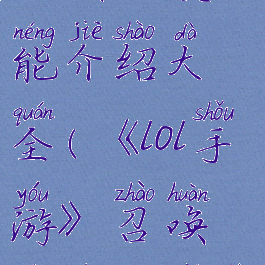 néng jiè shào dà
能介绍大
quán shǒu
全(《lol手
yóu zhào huàn
游》召唤